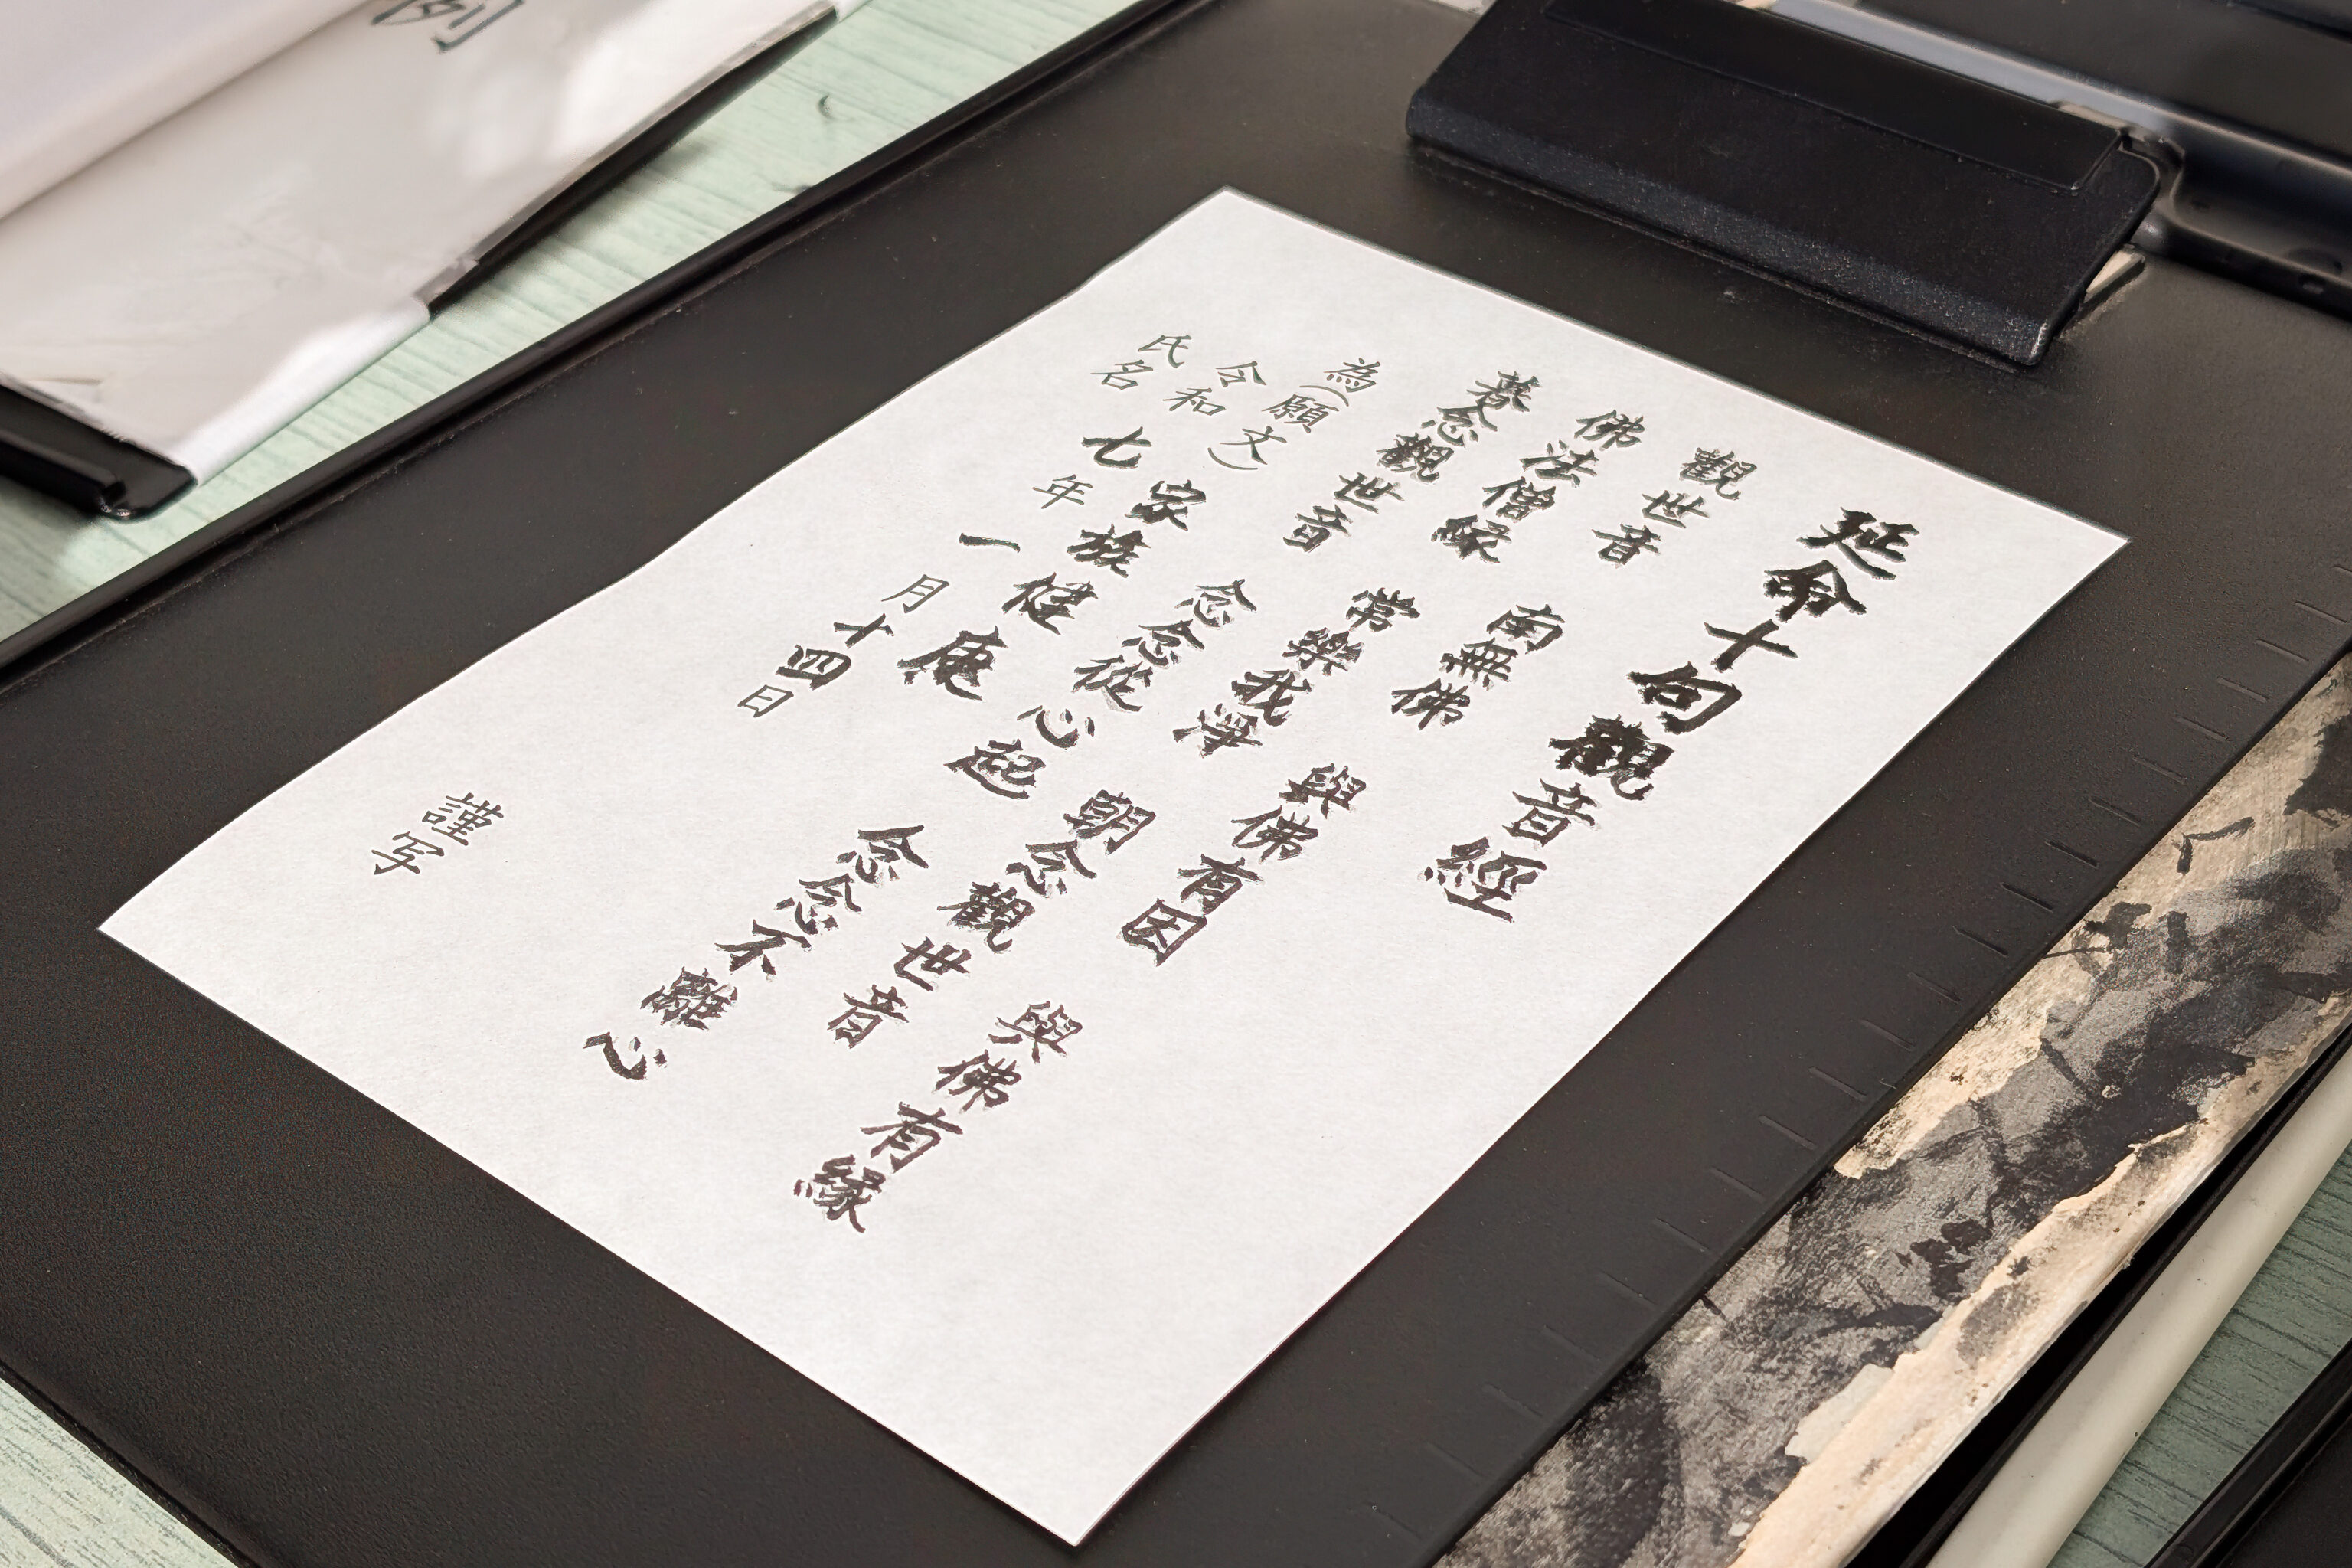 延命十句觀音經
觀世音　南無佛　與佛有因　與佛有縁
佛法僧縁　常樂我淨　朝念觀世音
暮念觀世音　念念從心起　念念不離心
為(願文)　家族健康
令和七年一月十四日
氏名　謹写